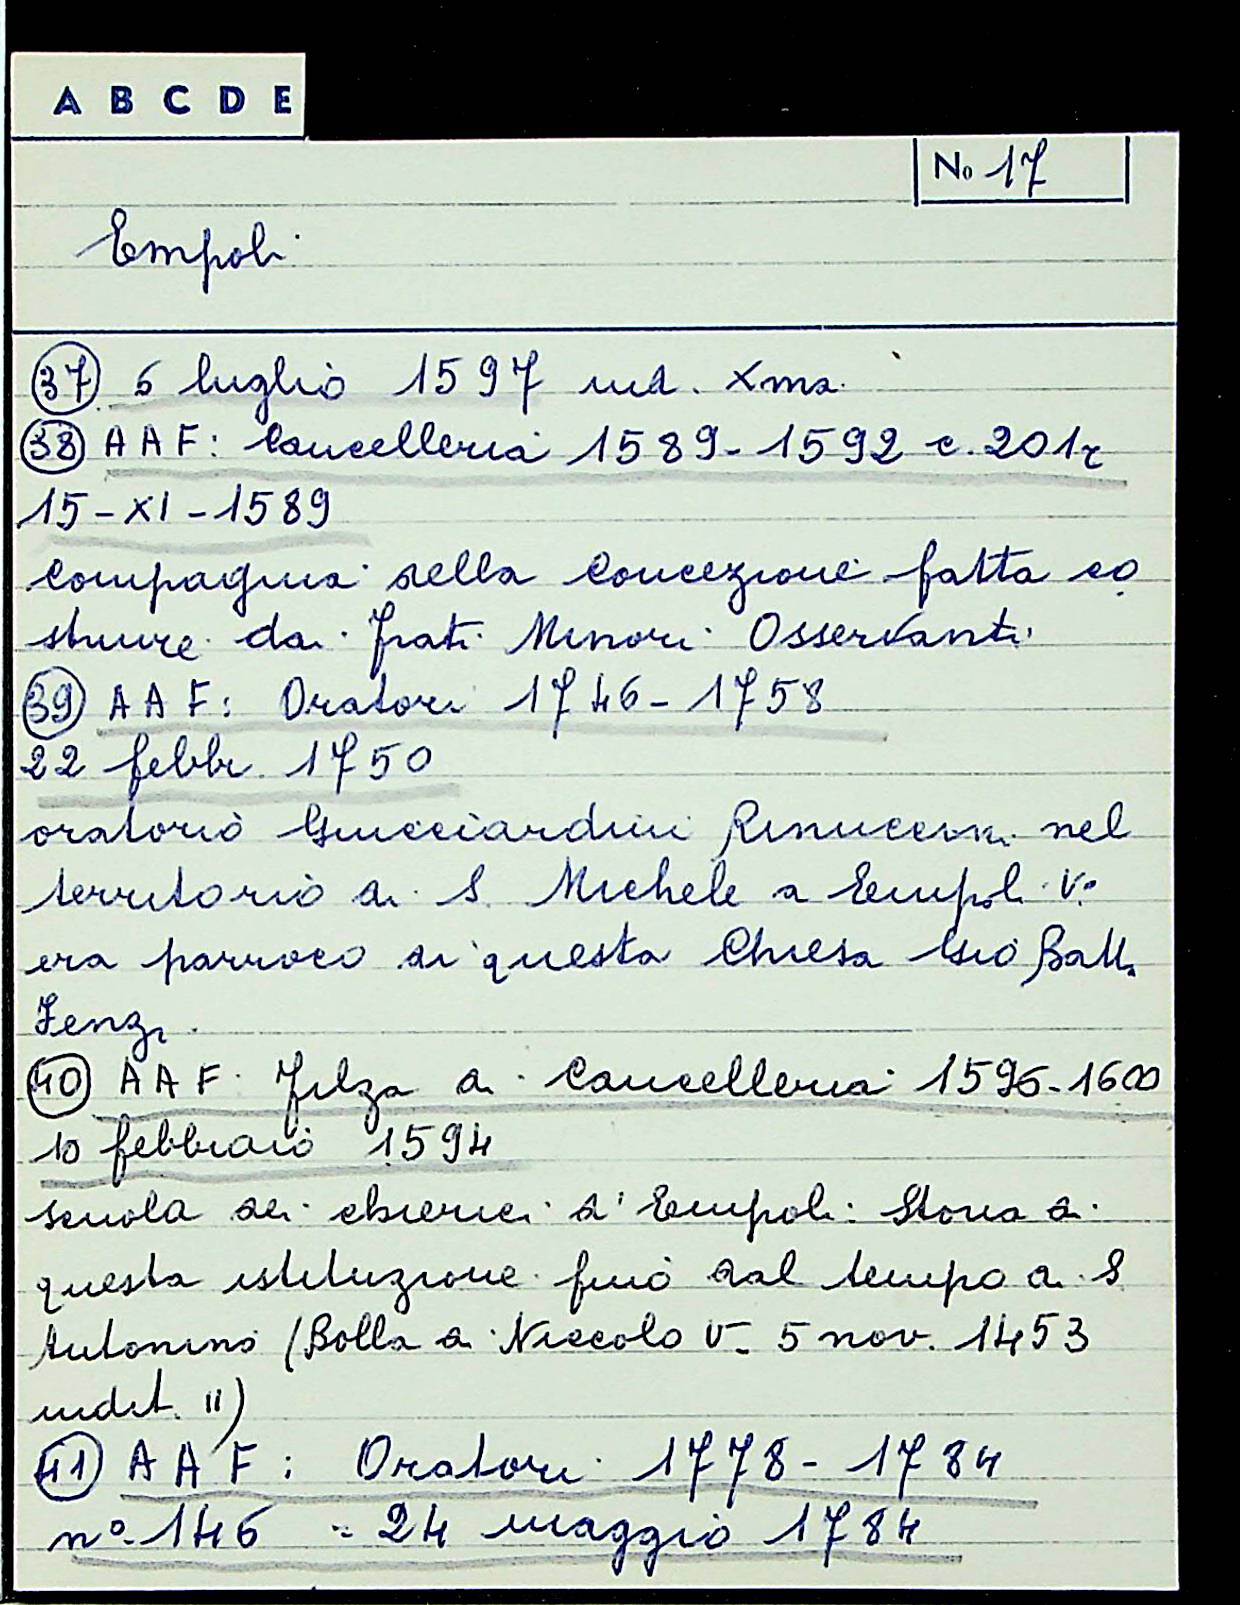 A B C D E
No 17
Empoli
37 5 luglio 1597 ind. Xma.
38 AAF: Cancelleria 1589-1592 c. 201r
15-XI-1589
Compagnia della Concezione fatta co
struire dai frati Minori Osservanti
39 AAF: Oratori 1746-1758
22 febbr. 1750
oratorio Guicciardini Rinuccini nel
territorio di S. Michele a Empoli V°
era parroco di questa Chiesa Gio Batt.
Fenzi.
40 AAF. Filza di Cancelleria 1595-1600
10 febbraio 1594
scuola dei chierici d'Empoli: Storia di
questa istituzione fino dal tempo di S
Antonino (Bolla di Niccolo V- 5 nov. 1453
indet. II)
41 AAF: Oratori 1778-1784
n°. 146 = 24 maggio 1784